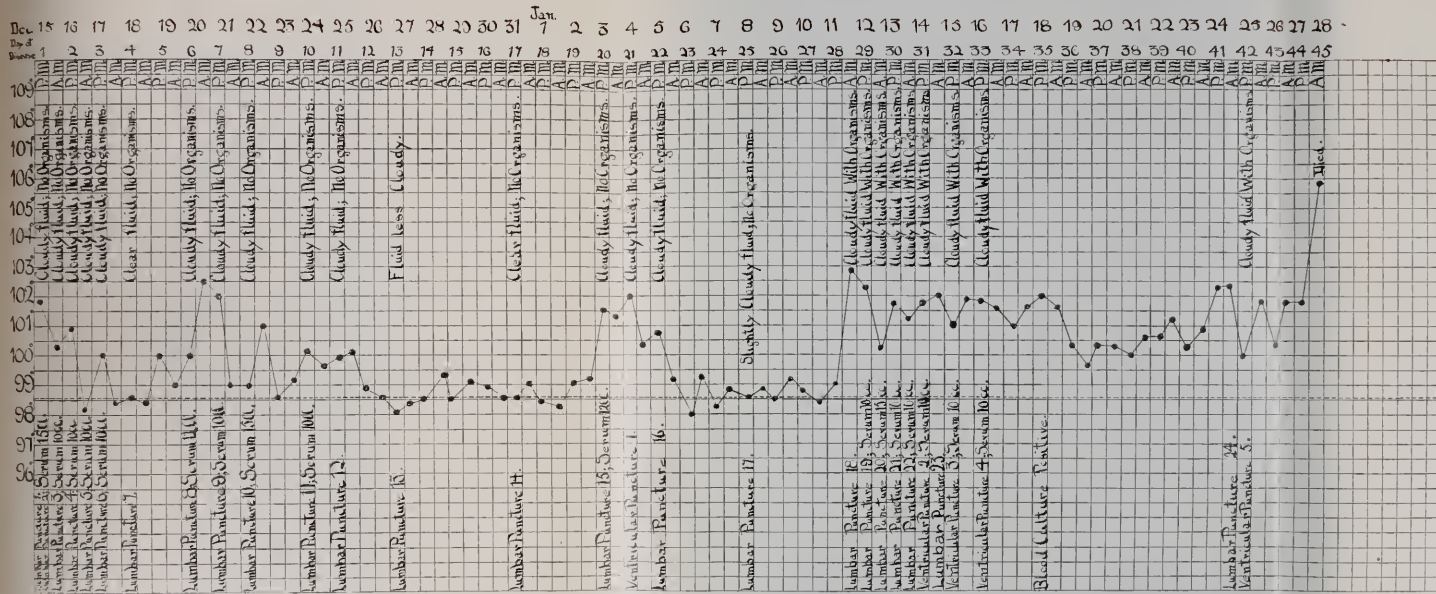 Jan.
Dec. 15 16 17 18 19 20 21 22 23 24 25 26 27 28 29 30 31 1 2 3 4 5 6 7 8 9 10 11 12 13 14 15 16 17 18 19 20 21 22 23 24 25 26 27 28
Day of
1 2 3 4 5 6 7 8 9 10 11 12 13 14 15 16 17 18 19 20 21 22 23 24 25 26 27 28 29 30 31 32 33 34 35 36 37 38 39 40 41 42 43 44 45
109°
108°
107°
106°
105°
104°
103°
102°
101°
100°
99°
98°
97°
96°
Cloudy Fluid; No Organisms.
Cloudy Fluid; No Organisms.
Cloudy Fluid; No Organisms.
Cloudy Fluid; No Organisms.
Cloudy Fluid; No Organisms.
Clear Fluid; No Organisms.
Cloudy Fluid; No Organisms.
Cloudy Fluid; No Organisms.
Cloudy Fluid; No Organisms.
Cloudy Fluid; No Organisms.
Cloudy Fluid; No Organisms.
Fluid less Cloudy.
Clear Fluid; No Organisms.
Cloudy Fluid; No Organisms.
Cloudy Fluid; No Organisms.
Cloudy Fluid; No Organisms.
Slightly Cloudy Fluid; No Organisms.
Cloudy Fluid With Organisms.
Cloudy Fluid With Organisms.
Cloudy Fluid With Organisms.
Cloudy Fluid With Organisms.
Cloudy Fluid With Organisms.
Cloudy Fluid With Organisms.
Cloudy Fluid With Organisms.
Cloudy Fluid With Organisms.
Cloudy Fluid With Organisms.
Died.
Lumbar Puncture 1;
Lumbar Puncture 2; Serum 15cc.
Lumbar Puncture 3; Serum 10cc.
Lumbar Puncture 4; Serum 10cc.
Lumbar Puncture 5; Serum 10cc.
Lumbar Puncture 6; Serum 10cc.
Lumbar Puncture 7.
Lumbar Puncture 8; Serum
Lumbar Puncture 9; Serum 10cc.
Lumbar Puncture 10; Serum
Lumbar Puncture 11; Serum 10cc.
Lumbar Puncture 12.
Lumbar Puncture 13.
Lumbar Puncture 14.
Lumbar Puncture 15; Serum 12cc.
Ventricular Puncture 1.
Lumbar Puncture 16.
Lumbar Puncture 17.
Lumbar Puncture 18.
Lumbar Puncture 19; Serum 10cc.
Lumbar Puncture 20; Serum
Lumbar Puncture 21; Serum 10cc.
Lumbar Puncture 22; Serum 10cc.
Ventricular Puncture 2; Serum 10cc.
Lumbar Puncture 23.
Ventricular Puncture 3; Serum 10cc.
Ventricular Puncture 4; Serum 10cc.
Blood Culture Positive.
Lumbar Puncture 24.
Ventricular Puncture 5.